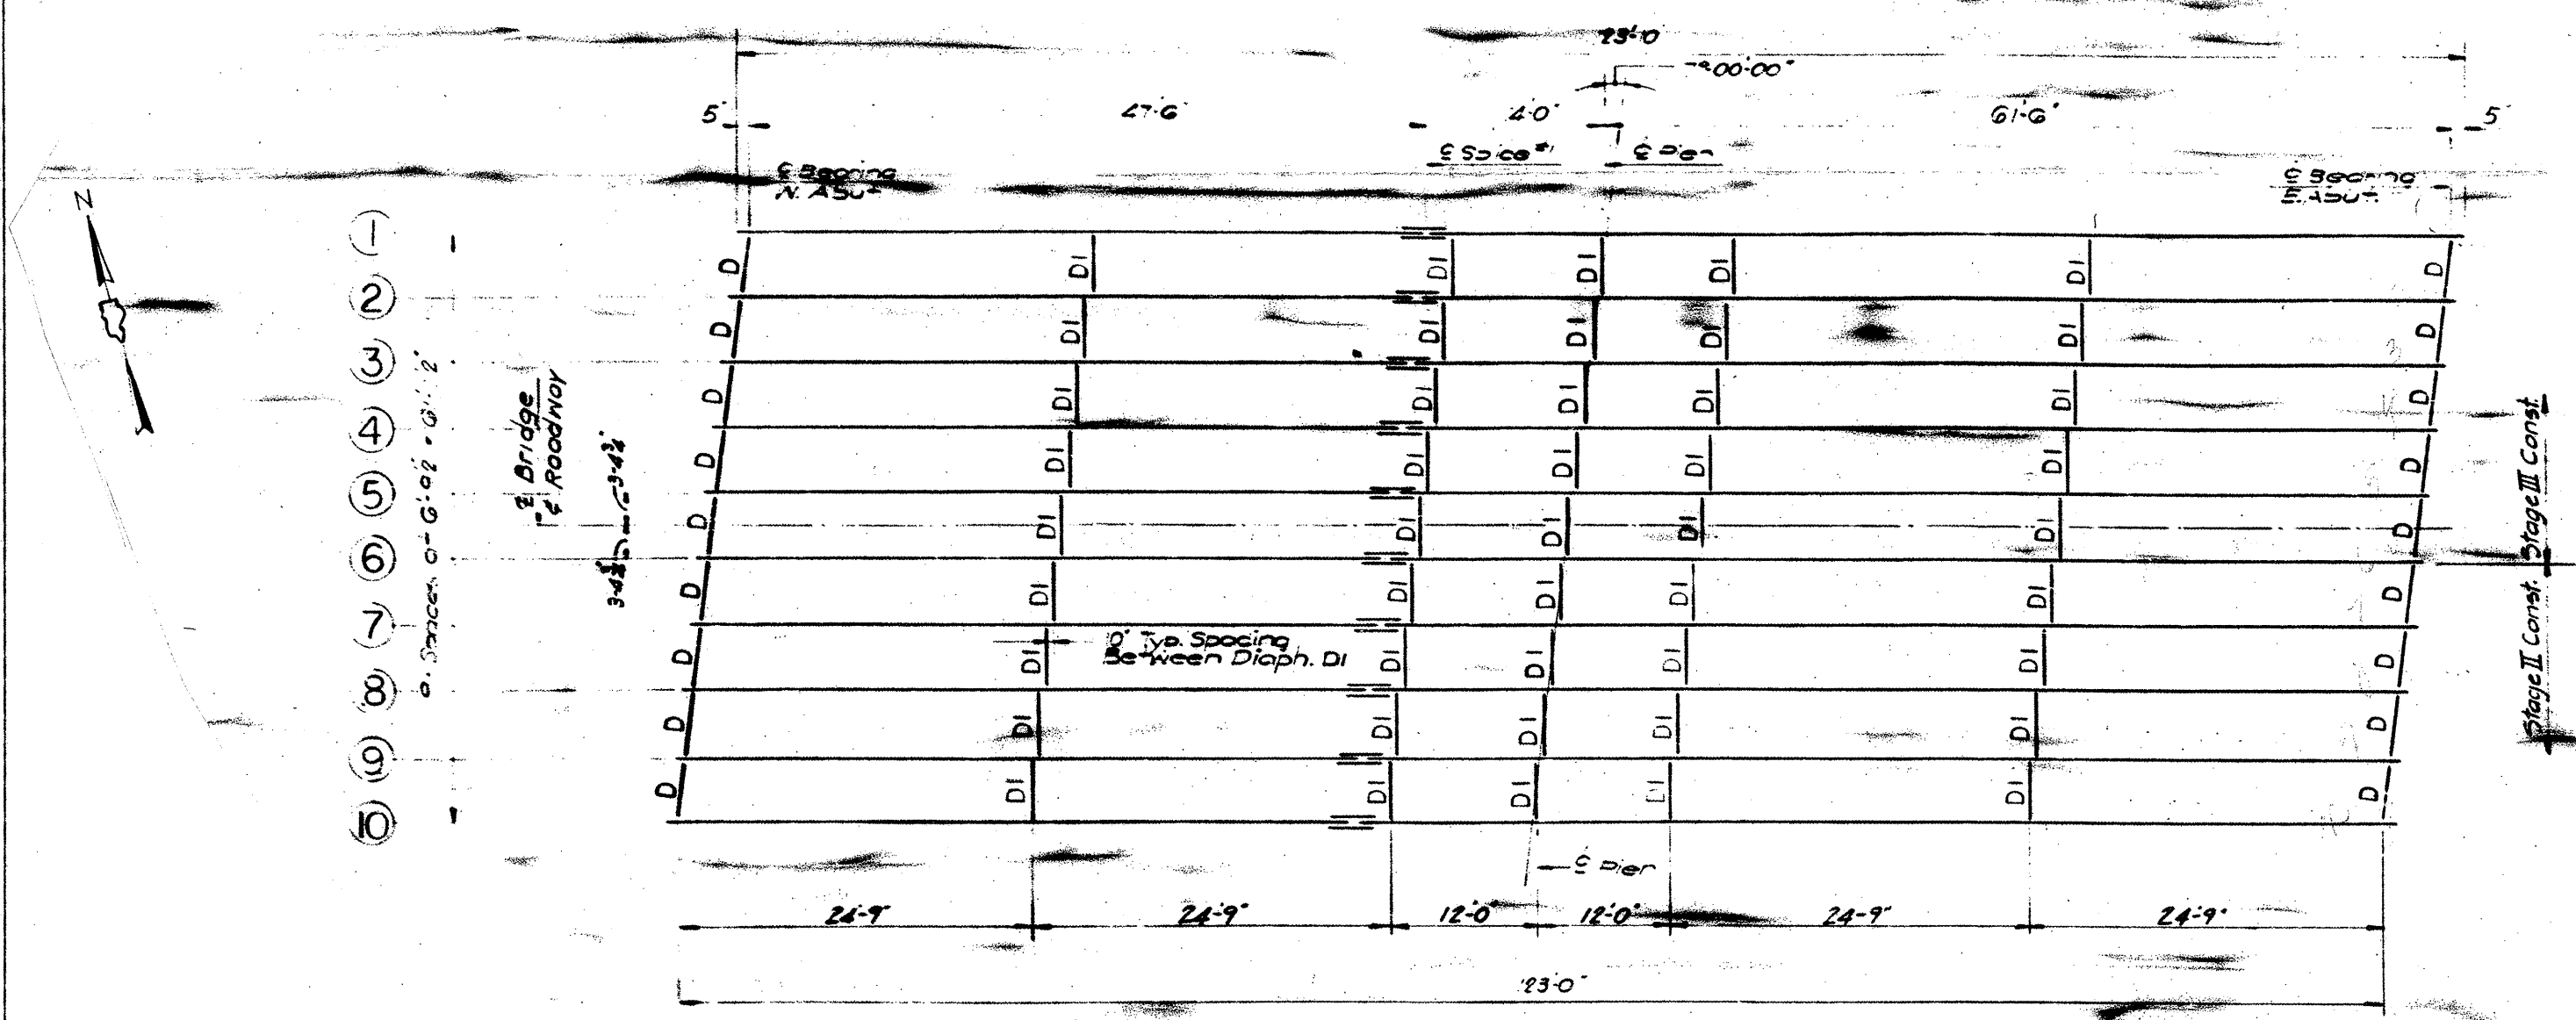 23'-0"
7°00'-00"
5"
47'-6"
4'-0"
61'-6"
5"
℄ Splice #1
℄ Pier
℄ Bearing
N. Abut.
℄ Bearing
E. Abut.
N
1
2
3
4
5
6
7
8
9
10
℄ Bridge
℄ Roadway
3'-4¾"
D D1 D1 D1 D1 D1 D
D D1 D1 D1 D1 D1 D
D D1 D1 D1 D1 D1 D
D D1 D1 D1 D1 D1 D
D D1 D1 D1 D1 D1 D
D D1 D1 D1 D1 D1 D
D D1 D1 D1 D1 D1 D
D D1 D1 D1 D1 D1 D
D D1 D1 D1 D1 D1 D
Typ. Spacing
Between Diaph. D1
Stage III Const.
Stage II Const.
℄ Pier
24'-9"
24'-9"
12'-0"
12'-0"
24'-9"
24'-9"
23'-0"